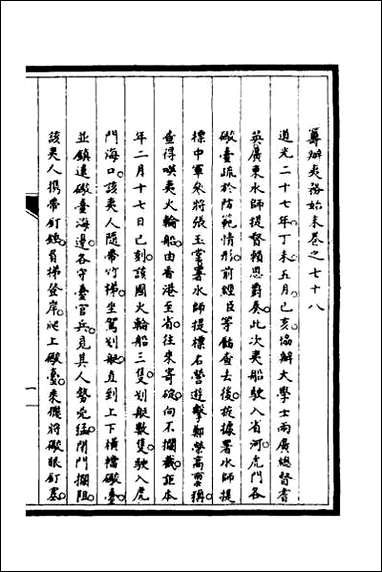 籌辦夷務始末卷之七十八
道光二十七年丁未五月己亥協辦大學士兩廣總督耆
英廣東水師提督賴恩爵奏此次夷船駛入省河虎門各
礮臺疏於防範情形前經臣等飭查去後旋據署水師提
標中軍參將張玉堂署水師提標右營遊擊鄭榮高稟稱
查得𠸄夷火輪船由香港至省往來寄碇向不攔截詎本
年二月十七日巳刻該國火輪船三隻划艇數隻駛入虎
門海口該夷人隨帶竹梯坐駕划艇直到上下橫檔礮臺
並鎮遠礮臺海邊各守臺官兵見其人勢兇猛閉門攔阻
該夷人攜帶釘鎚負梯登岸爬上礮臺乘機將礮眼釘塞
一